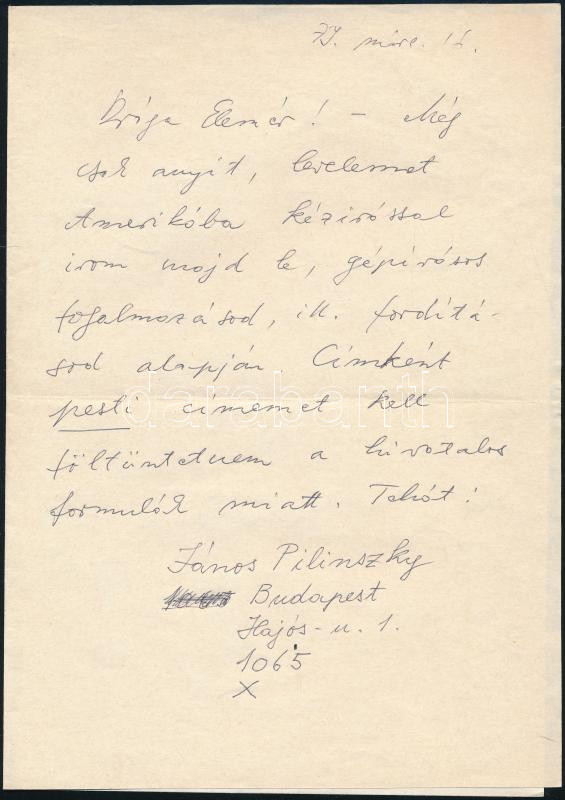 79. márc. 12.
Drága Elemér! – Még
csak annyit, levelemet
Amerikába kézirással
irom majd le, gépirásos
fogalmozásod, ill. forditá-
sod alapján. Címként
pesti címemet kell
föltüntetnem a hivatalos
formulák miatt. Tehát:
János Pilinszky
Budapest
Hajós-u. 1.
1065
X
darabanth